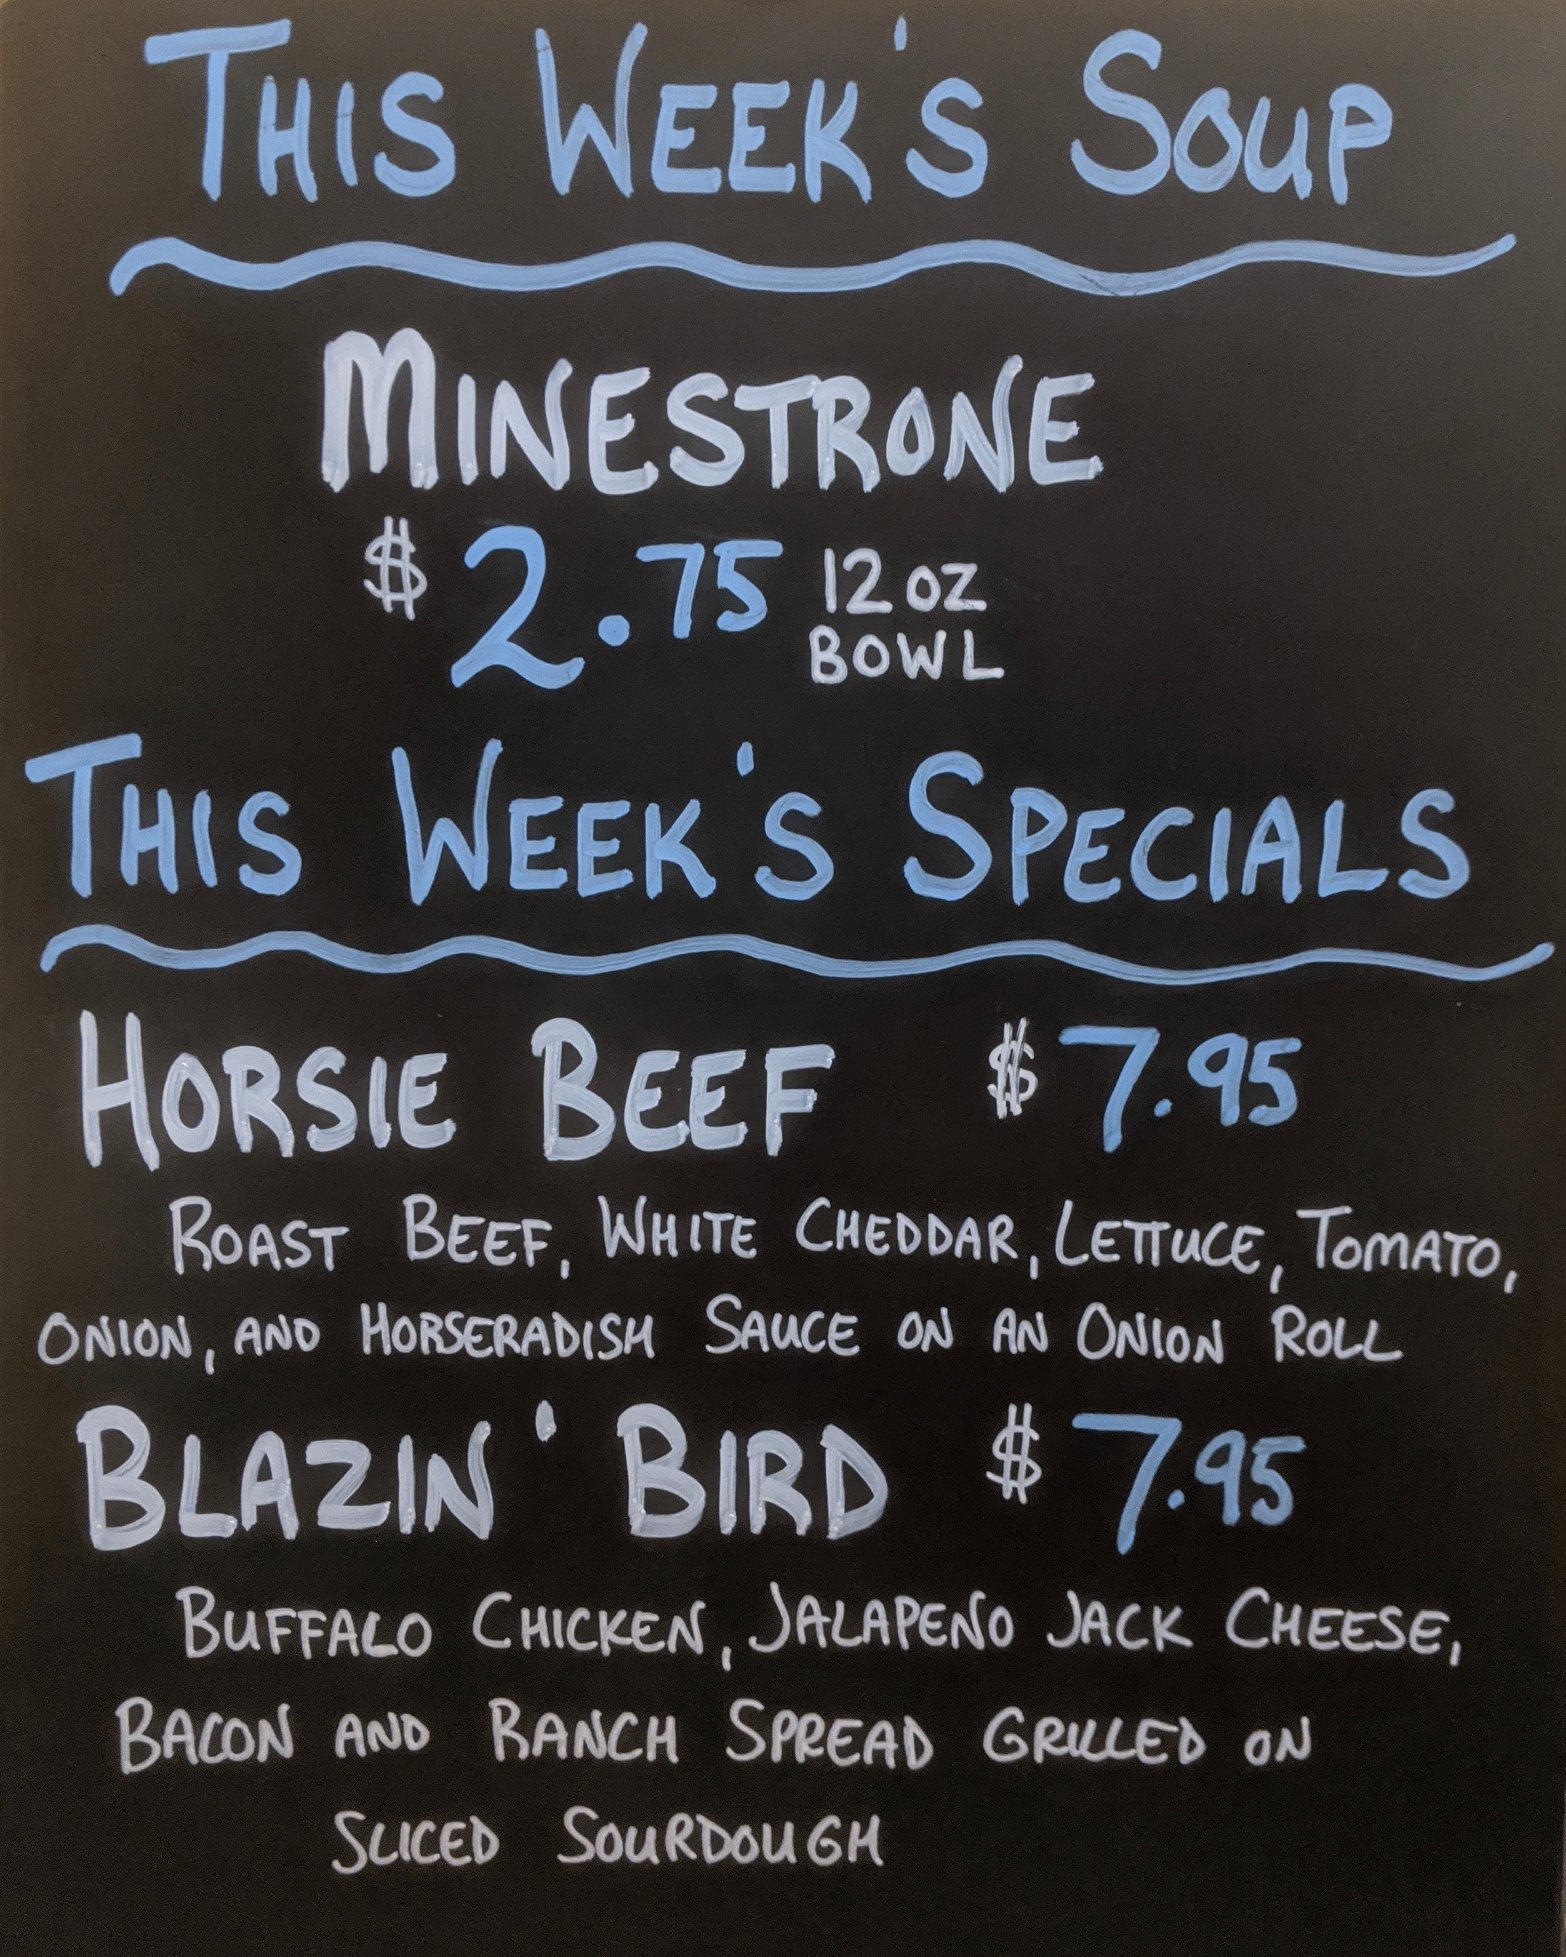 THIS WEEK'S SOUP
MINESTRONE
$2.75 12 OZ
BOWL
THIS WEEK'S SPECIALS
HORSIE BEEF $7.95
ROAST BEEF, WHITE CHEDDAR, LETTUCE, TOMATO,
ONION, AND HORSERADISH SAUCE ON AN ONION ROLL
BLAZIN' BIRD $7.95
BUFFALO CHICKEN, JALAPEÑO JACK CHEESE,
BACON AND RANCH SPREAD GRILLED ON
SLICED SOURDOUGH